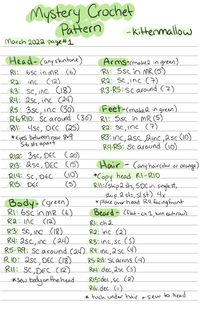 Mystery Crochet
Pattern
-kittenmallow
March 2022 page #1
Head- (any skintone)
R1: 6sc in MR (6)
R2: inc (12)
R3: sc, inc (18)
R4: 2sc, inc (24)
R5: 3sc, inc (30)
R6-R10: sc around (30)
R11: 4sc, DEC (25)
*eyes between row 8+9
R12: 3sc, DEC (20)
R13: 2sc, DEC (15)
R14: sc, DEC (10)
R15: DEC (5)
Body- (green)
R1: 6sc in MR (6)
R2: INC (12)
R3: SC, INC (18)
R4: 2sc, INC (24)
R5-R9: sc around (24)
R10: 2sc, DEC (18)
R11: SC, DEC (12)
*sew body on the head
Arms- (make 2 in green)
R1: 5sc in MR (5)
R2: sc, inc (7)
R3-R5: sc around (7)
Feet- (make 2 in green)
R1: 5sc in MR (5)
R2: sc, inc (7)
R3: inc, 2sc, 2inc, 2sc (10)
R4-R5: sc around (10)
Hair - (any haircolor or orange)
*Copy head R1-R10
R11: (skip 2 sts, 5DC in single st,
skip 2 sts, slst) 4x
*place over head R4 facing front
Beard-
R1: ch2
R2: inc (2)
R3: inc, sc (3)
R4: inc, 2sc (4)
R4: dec, 2sc (3)
R5: dec, sc (2)
R6: dec (1)
* tuck under hair + sew to head